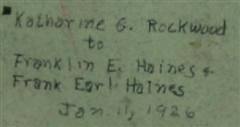 Katharine G. Rockwood
to
Franklin E. Haines &
Frank Earl Haines
Jan. 11, 1926